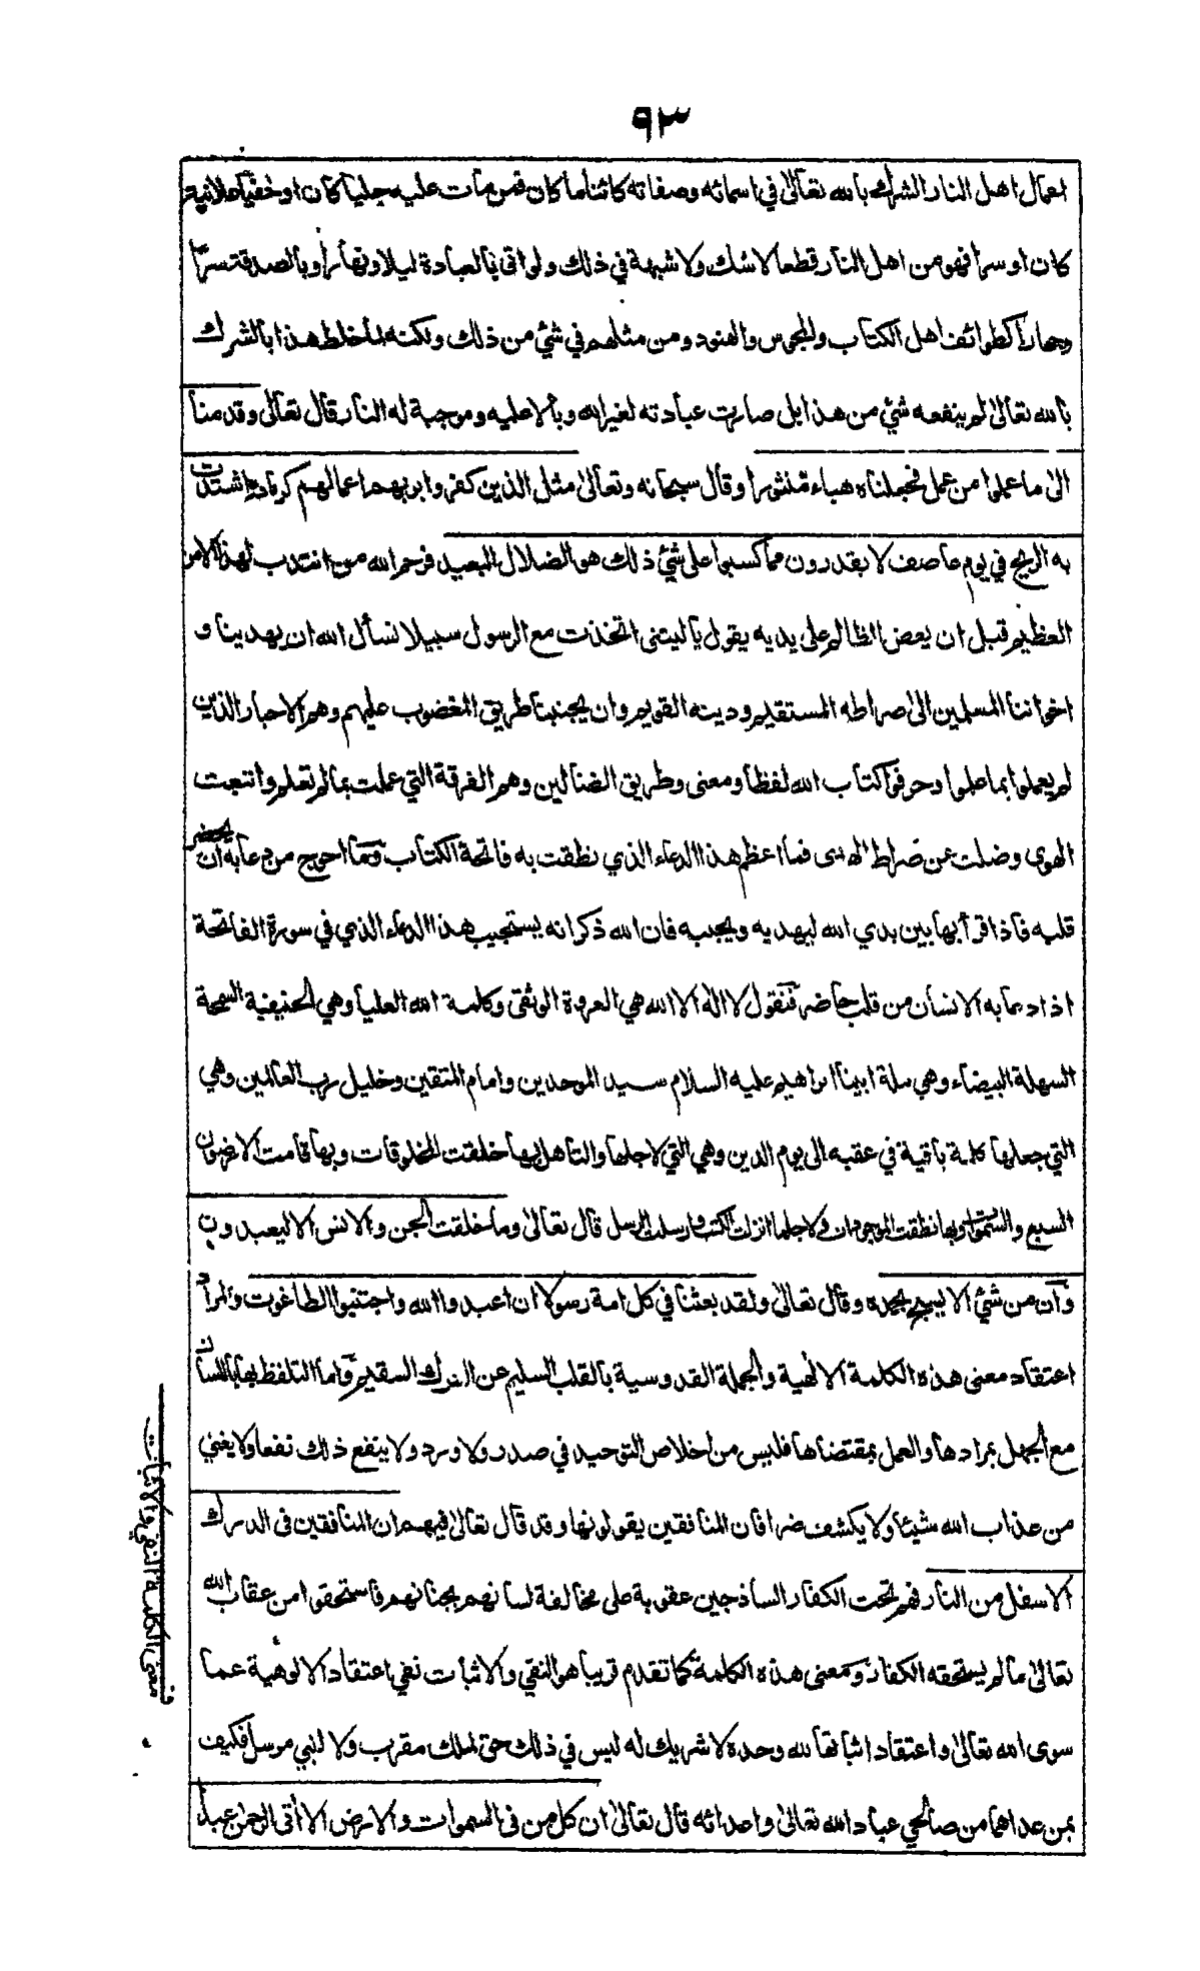 ٩٣
اعمال اهل النار الشرك بالله تعالى في اسمائه وصفاته كائنا ما كان فمن مات عليه جليا كان او خفيا علانية
كان او سرا فهو من اهل النار قطعا لا شك ولا شبهة في ذلك ولو اتى بالعبادة ليلا ونهارا وبالصدقة سرّا
وجهارا كطوائف اهل الكتاب والمجوس والهنود ومن مثلهم في شئ من ذلك ولكنه لما خلط هذا بالشرك
بالله تعالى لم ينفعه شئ من هذا بل صارت عبادته لغير الله وبالا عليه وموجبة له النار قال تعالى وقدمنا
الى ما عملوا من عمل فجعلناه هباء منثورا وقال سبحانه وتعالى مثل الذين كفروا بربهم اعمالهم كرماد اشتدت
به الريح في يوم عاصف لا يقدرون مما كسبوا على شئ ذلك هو الضلال البعيد فرحم الله من انتدب لهذا الامر
العظيم قبل ان يعض الظالم على يديه يقول يا ليتنى اتخذت مع الرسول سبيلا نسأل الله ان يهدينا و
اخواننا المسلمين الى صراطه المستقيم ودينه القويم وان يجنبنا طريق المغضوب عليهم وهم الاحبار الذين
لم يعملوا بما علموا وحرفوا كتاب الله لفظا ومعنى وطريق الضالين وهم الفرقة التي عملت بما لم تعلم واتبعت
الهوى وضلت عن صراط الهدى فما اعظم هذا الدعاء الذي نطقت به فاتحة الكتاب وما احوج من دعا به ان يحضر
قلبه فاذا قرأ بها بين يدي الله ليهديه ويجيبه فان الله ذكر انه يستجيب هذا الدعاء الذي في سورة الفاتحة
اذا دعا به الانسان من قلب حاضر فنقول لا اله الا الله هي العروة الوثقى وكلمة الله العليا وهي الحنيفية السمحة
السهلة البيضاء وهي ملة ابينا ابراهيم عليه السلام سيد الموحدين وامام المتقين وخليل رب العالمين وهي
التي جعلها كلمة باقية في عقبه الى يوم الدين وهي التي لاجلها والتاهل بها خلقت المخلوقات وبها قامت الارضون
السبع والسموات وبها نطقت الموجودات ولاجلها انزلت الكتب وارسلت الرسل قال تعالى وما خلقت الجن والانس الا ليعبدون
وان من شئ الا يسبح بحمده وقال تعالى ولقد بعثنا في كل امة رسولا ان اعبدوا الله واجتنبوا الطاغوت والمراد
اعتقاد معنى هذه الكلمة الالهية والجملة القدوسية بالقلب السليم عن الدرك السقيم واما التلفظ بها باللسان
مع الجهل بمرادها والعمل بمقتضاها فليس من اخلاص التوحيد في صدر ولا ورد ولا ينفع ذلك نفعا ولا يغني
من عذاب الله شيئا ولا يكشف ضرا فان المنافقين يقولونها وقد قال تعالى فيهم ان المنافقين فى الدرك
الاسفل من النار فهم تحت الكفار الساذجين عقوبة على مخالفة لسانهم بجنانهم فاستحقوا من عقاب الله
تعالى ما لم يستحقه الكفار ومعنى هذه الكلمة كما تقدم قريبا هو النفي والاثبات نفي اعتقاد الالوهية عما
سوى الله تعالى واعتقاد اثباتها لله وحده لا شريك له ليس في ذلك حق لملك مقرب ولا لنبي مرسل فكيف
بمن عداهما من صالحي عباد الله تعالى واعدائه قال تعالى ان كل من فى السموات والارض الا اتى الرحمن عبدا
معنى الكلمة النفي والاثبات